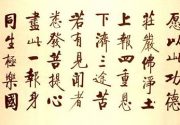 愿以此功德
莊嚴佛淨土
上報四重恩
下濟三途苦
若有見聞者
悉發菩提心
盡此一報身
同生極樂國